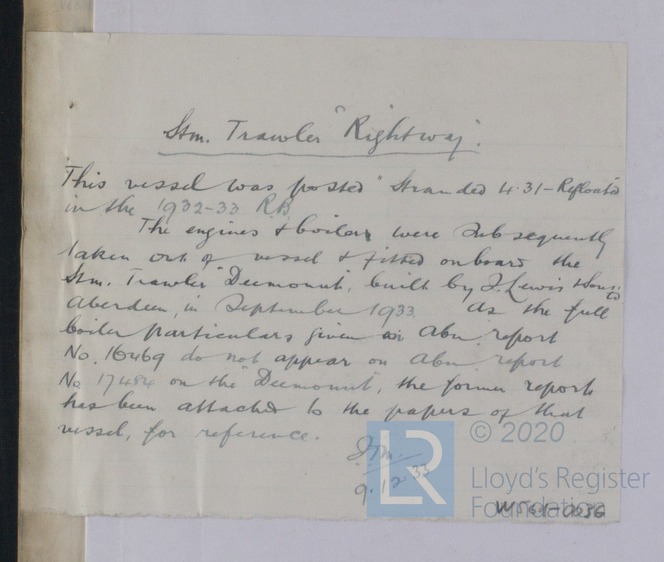 Stm. Trawler "Rightway".
This vessel was posted "Stranded 4.31 - Refloated"
in the 1932-33 R.B.
The engines & boilers were subsequently
taken out of vessel & fitted onboard the
Stm. Trawler "Deemount", built by J. Lewis & Sons Ld
Aberdeen, in September 1933. As the full
boiler particulars given in Abn. report
No. 16469 do not appear on Abn. report
No 17484 on the "Deemount", the former report
has been attached to the papers of that
vessel, for reference.
9.12.33
LR
© 2020
Lloyd's Register
Foundation
W561-0036